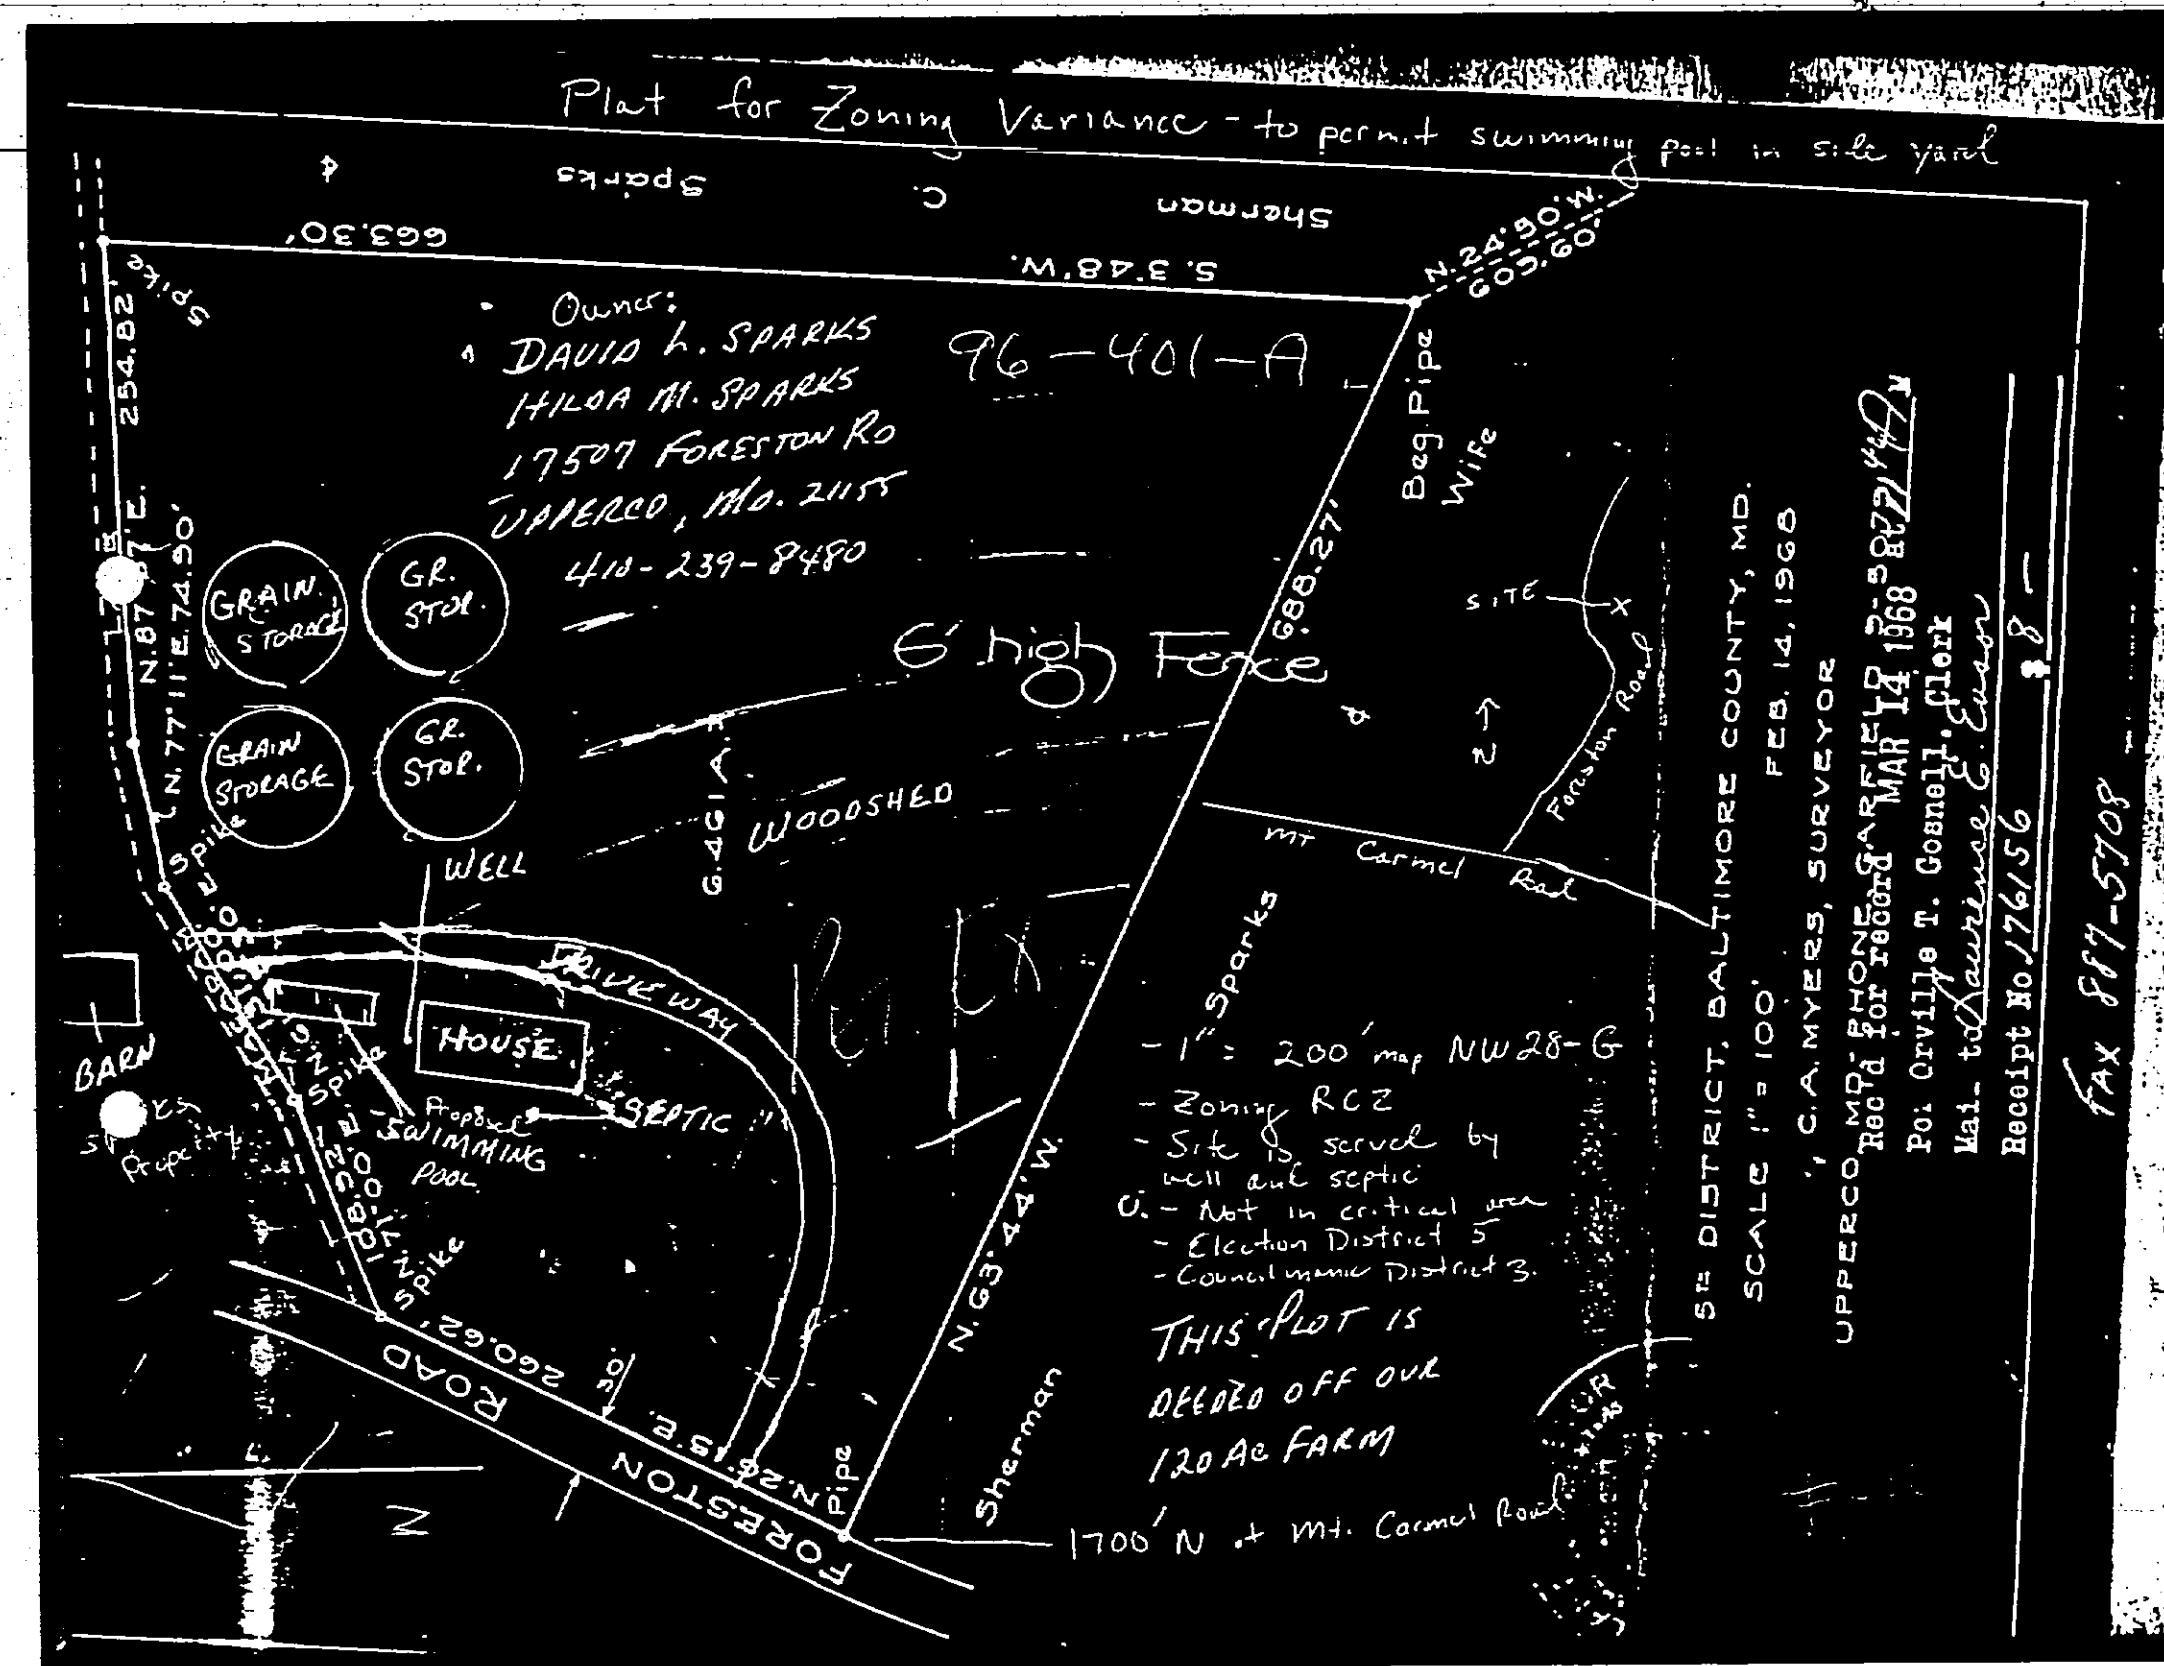 Plat for Zoning Variance - to permit swimming pool in side yard
Sherman C. Sparks &
663.30'
S. 3°48' W.
N. 24°30' W.
603.60'
Spike
254.82'
Owner:
DAVID L. SPARKS
HILDA M. SPARKS
17507 FORESTON RD
UPPERCO, MD. 21155
410-239-8480
96-401-A
Beg. Pipe
Wife
688.27'
N. 77° 11' E. 74.90'
GRAIN STORAGE
GR. STOR.
GRAIN STORAGE
GR. STOR.
6' high Fence
6.461 A.
WOODSHED
WELL
Spike
SITE
X
N
Foreston Road
Mt Carmel Road
&
DRIVEWAY
HOUSE
BARN
Spike
Proposed
SWIMMING
POOL
SEPTIC
property
108.92'
Spike
260.62'
30'
FORESTON ROAD
Pipe
N. 63° 44' W.
Sherman Sparks
- 1" = 200' map NW 28-G
- Zoning RC2
- Site is served by
well and septic
- Not in critical area
- Election District 5
- Councilmanic District 3.
THIS PLOT IS
DEEDED OFF OUR
120 AC FARM
1700' N of Mt. Carmel Road
N
5TH DISTRICT, BALTIMORE COUNTY, MD.
SCALE 1" = 100'
FEB. 14, 1968
C. A. MYERS, SURVEYOR
UPPERCO, MD. PHONE GARFIELD
Rec'd for record MAR 14 1968 at
Per Orville T. Gosnell, Clerk
Mail to
Receipt No. 176156
$ 8 -
FAX 887-5708